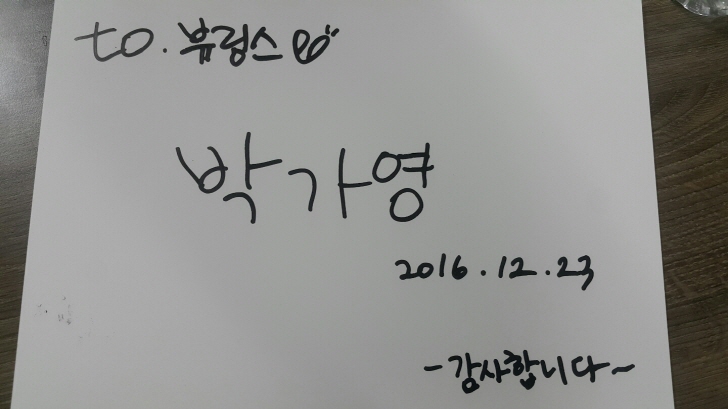 to. 뷰링스
박가영
2016.12.23
-감사합니다~